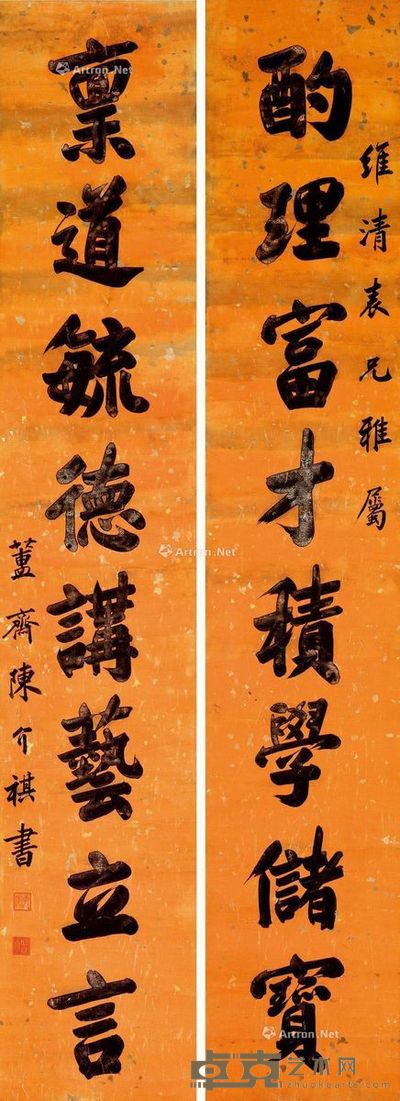 維清表兄雅屬
酌理富才積學儲寶
稟道毓德講藝立言
簠齋陳介祺書
Artron.Net
Artron.Net
Artron.Net
卓克艺术网